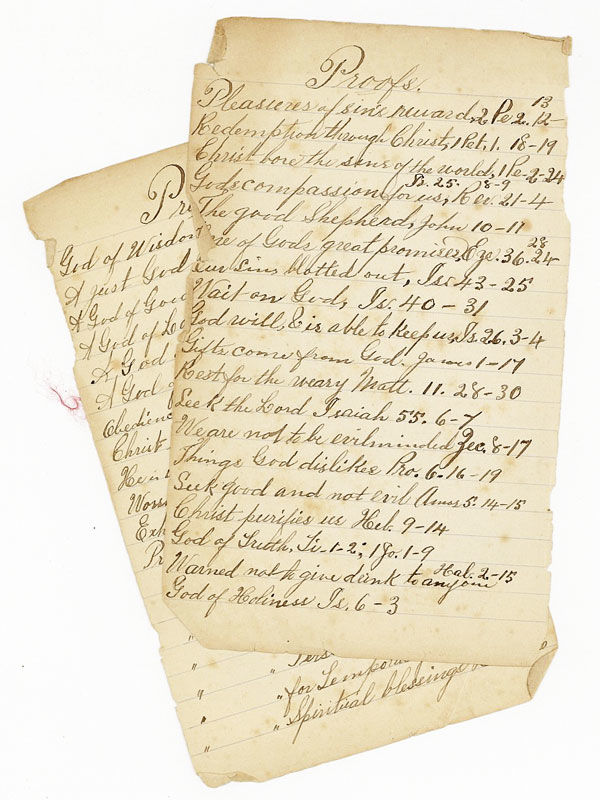 Proofs.
Pleasures of sin's reward, 2 Pe. 2. 12 13
Redemption through Christ, 1 Pet. 1. 18-19
Christ bore the sins of the world, 1 Pe-2-24
God's compassion for us, Is. 25. 8-9 Rev. 21-4
The good Shepherd, John 10-11
of God's great promises, Eze. 36. 24 28
sins blotted out, Is. 43-25
Wait on God, Is. 40-31
God will, & is able to keep us, Is. 26. 3-4
Gifts come from God. James 1-17
Rest for the weary Matt. 11. 28-30
Seek the Lord Isaiah 55. 6-7
We are not to be evilminded Zec. 8-17
Things God dislikes Pro. 6-16-19
Seek good and not evil Amos 5. 14-15
Christ purifies us Heb. 9-14
God of Truth, Ti. 1-2; 1 Jo. 1-9
Warned not to give drink to anyone Hab. 2-15
God of Holiness Is. 6-3
God of Wisdom
A just God
A God of Good
A God of
A God
A God of
Obedience
Christ
He
" 
" for Tempora
" " Spiritual blessings
"